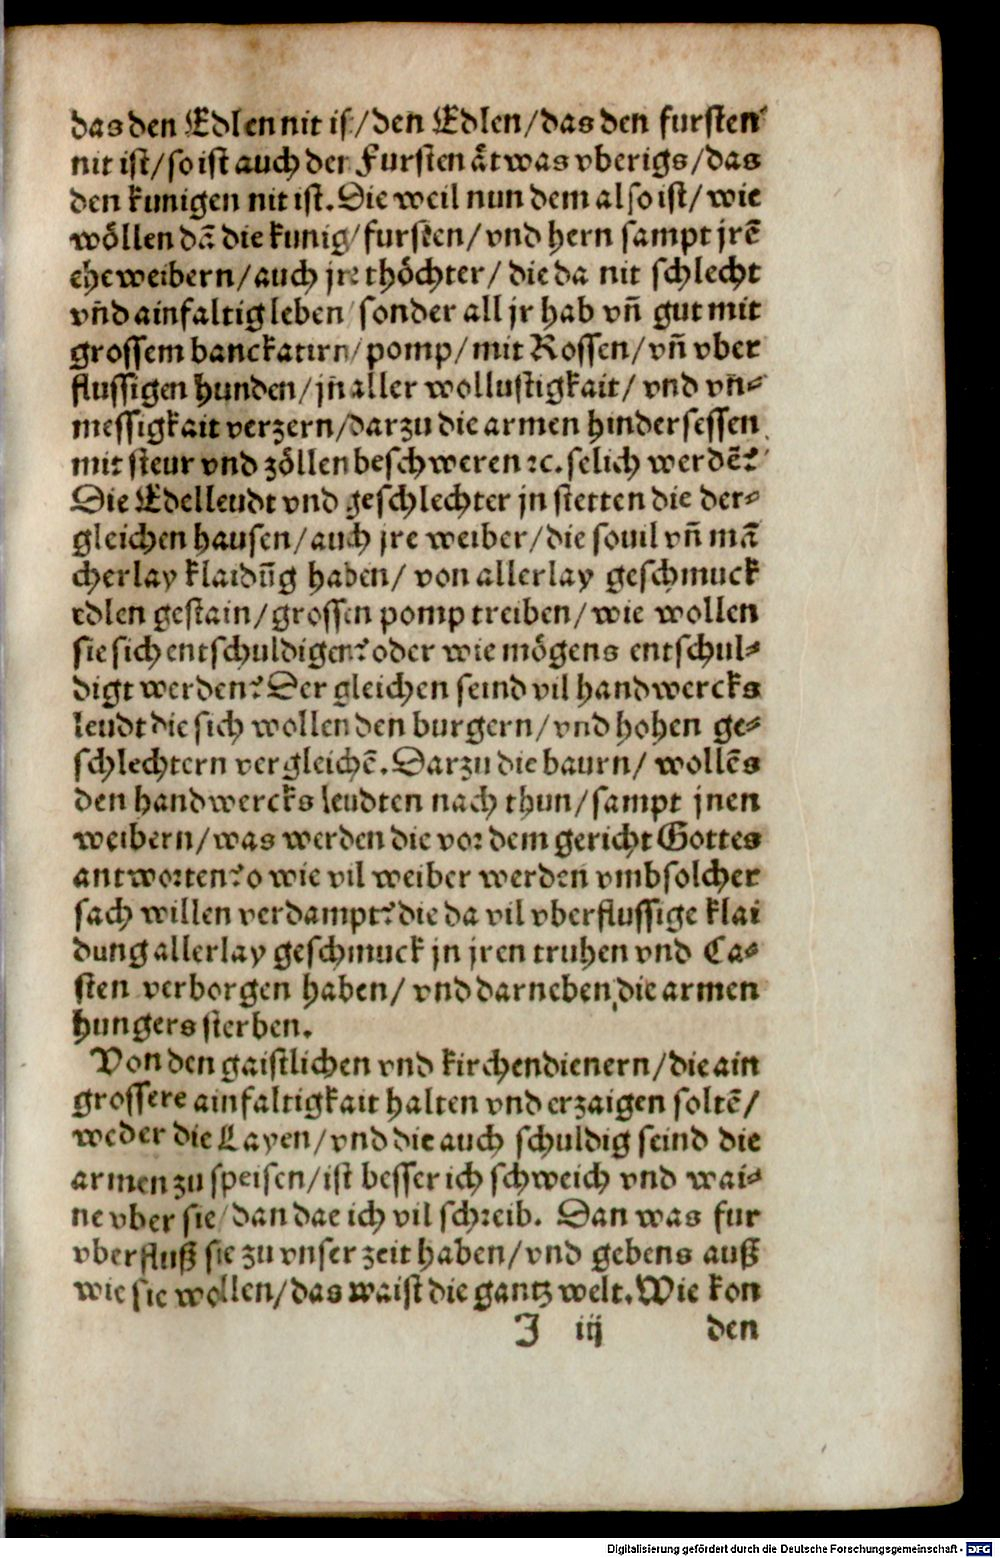 das den Edlen nit ist/den Edlen/das den fursten
nit ist/so ist auch der Fursten åtwas vberigs/das
den kunigen nit ist. Die weil nun dem also ist/ wie
wöllen dā die kunig/fursten/vnd hern sampt jrē
eheweibern/auch jre thöchter/ die da nit schlecht
vñd ainfaltig leben/sonder all jr hab vñ gut mit
grossem banckatirn/pomp/mit Rossen/vñ vber
flussigen hunden/jñ aller wollustigkait/ vnd vñ⸗
messigkait verzern/darzu die armen hindersessen
mit steur vnd zöllen beschweren ꝛc. selich werdē?
Die Edelleudt vnd geschlechter jn stetten die der⸗
gleichen hausen/auch jre weiber/die souil vñ mā
cherlay klaidūg haben/ von allerlay geschmuck
edlen gestain/grossen pomp treiben/wie wollen
sie sich entschuldigen? oder wie mögens entschul⸗
digt werden? Der gleichen seind vil handwercks
leudt die sich wollen den burgern/vnd hohen ge⸗
schlechtern vergleichē. Darzu die baurn/ wollēs
den handwercks leudten nach thun/sampt jnen
weibern/was werden die vor dem gericht Gottes
antworten? o wie vil weiber werden vmb solcher
sach willen verdampt? die da vil vberflussige klai
dung allerlay geschmuck jn jren truhen vnd Ca⸗
sten verborgen haben/ vnd darneben die armen
hungers sterben.
Von den gaistlichen vnd kirchendienern/die ain
grossere ainfaltigkait halten vnd erzaigen soltē/
weder die Layen/vnd die auch schuldig seind die
armen zu speisen/ist besser ich schweich vnd wai⸗
ne vber sie/dan dae ich vil schreib. Dan was fur
vberfluß sie zu vnser zeit haben/vnd gebens auß
wie sie wollen/das waist die gantz welt. Wie kon
J iij den
Digitalisierung gefördert durch die Deutsche Forschungsgemeinschaft - DFG